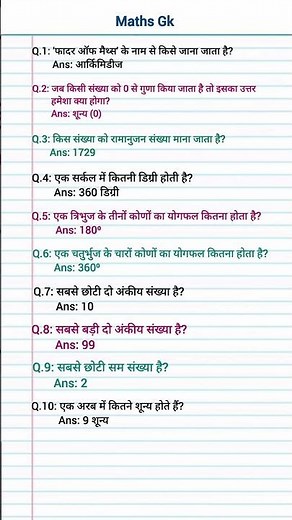 Maths Gk
Q.1: 'फादर ऑफ मैथ्स' के नाम से किसे जाना जाता है?
Ans: आर्किमिडीज
Q.2: जब किसी संख्या को 0 से गुणा किया जाता है तो इसका उत्तर
हमेशा क्या होगा?
Ans: शून्य (0)
Q.3: किस संख्या को रामानुजन संख्या माना जाता है?
Ans: 1729
Q.4: एक सर्कल में कितनी डिग्री होती है?
Ans: 360 डिग्री
Q.5: एक त्रिभुज के तीनों कोणों का योगफल कितना होता है?
Ans: 180º
Q.6: एक चतुर्भुज के चारों कोणों का योगफल कितना होता है?
Ans: 360º
Q.7: सबसे छोटी दो अंकीय संख्या है?
Ans: 10
Q.8: सबसे बड़ी दो अंकीय संख्या है?
Ans: 99
Q.9: सबसे छोटी सम संख्या है?
Ans: 2
Q.10: एक अरब में कितने शून्य होते हैं?
Ans: 9 शून्य